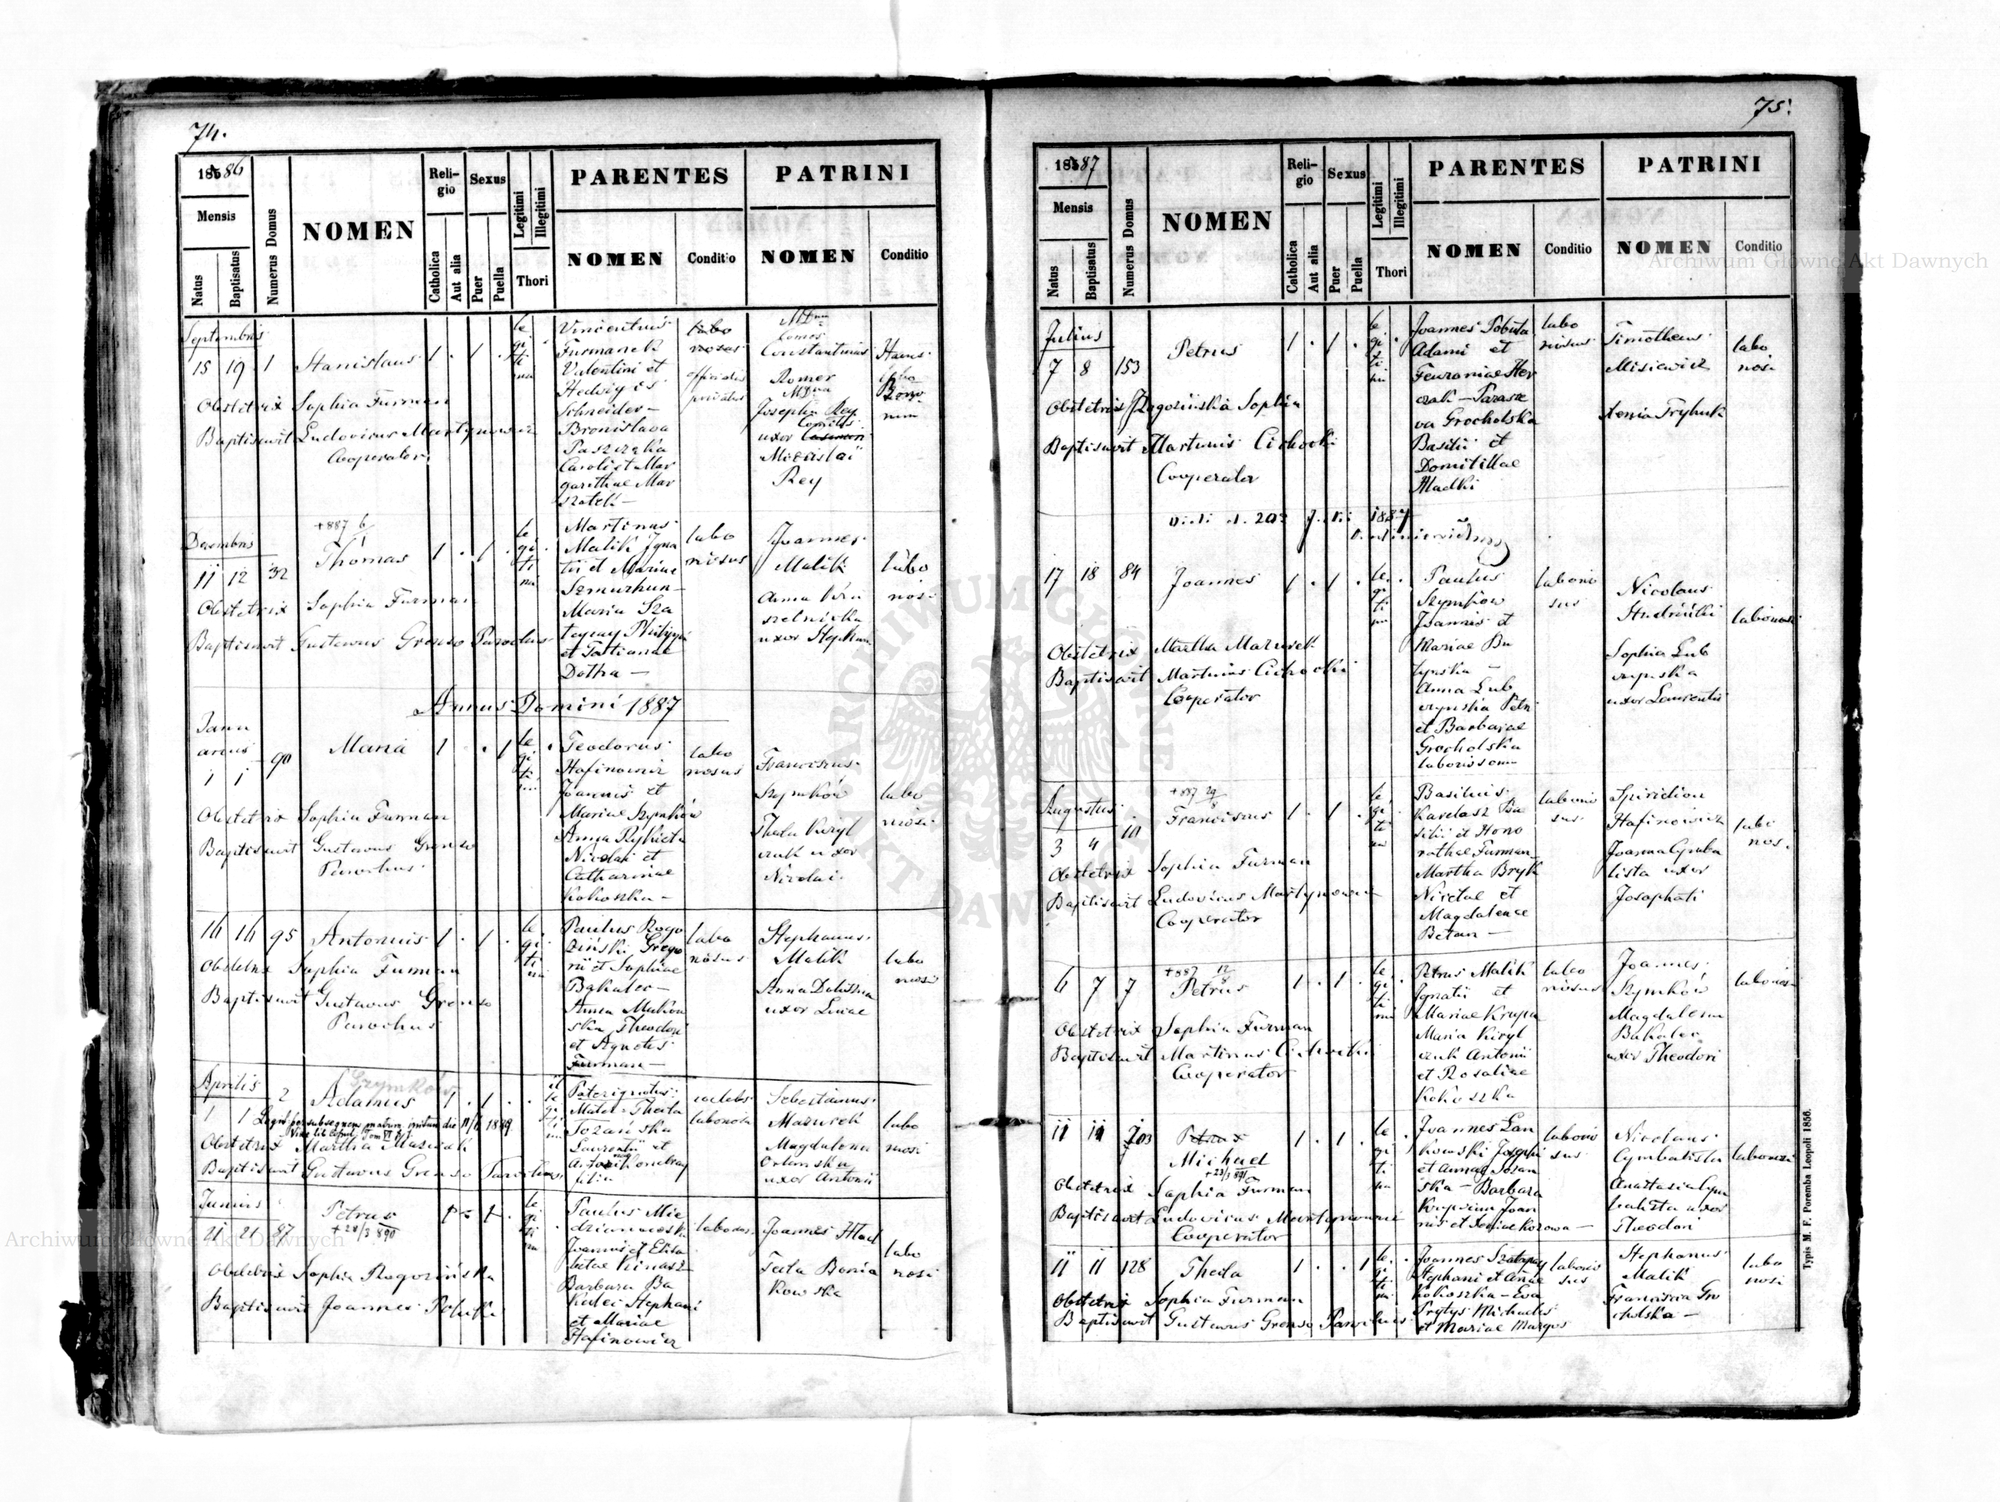 74.
1886
Mensis
Natus
Baptisatus
Numerus Domus
NOMEN
Religio
Catholica
Aut alia
Sexus
Puer
Puella
Legitimi
Illegitimi
Thori
PARENTES
NOMEN
Conditio
PATRINI
NOMEN
Conditio
Septembris
15 19 1 Stanislaus 1 . 1 .
legitimi
Vincentius
Furmanek
Valentini et
Hedvigis
Schneider –
Bronislava
Paszczka
Caroli et Mar
garethae Mar
szałek –
officialis
privatus
Constantinus
Romer
Josepha Rey
Comitis
uxor
Miecislai
Rey
Obstetrix Sophia Furman
Baptisavit Ludovicus Martynowicz
Cooperator
Decembris
+887 6/1
11 12 32 Thomas 1 . 1 .
legitimi
Martinus
Malik Igna
tii et Mariae
Szmurhun –
Maria Sza
tapay Philippi
et Tatianae
Dotha –
labo
riosus
Joannes
Malik
Anna
uxor Stephani
labo
riosi
Obstetrix Sophia Furman
Baptisavit Gustavus Grenso Parochus
Annus Domini 1887
Janu
arius
1 1 90 Maria 1 . . 1
legitimi
Teodorus
Hafinowicz
Joannis et
Mariae Szymków
Anna Rybicka
Nicolai et
Catharinae
Kokoszka –
labo
riosus
Franciscus
Szymków
Thecla Kiryl
czuk uxor
Nicolai
labo
riosi
Obstetrix Sophia Furman
Baptisavit Gustavus Grenso
Parochus
16 16 95 Antonius 1 . 1 .
legitimi
Paulus Rogo
ziński Grego
rii et Sophiae
Bakalec –
Anna Muków
ska Theodori
et Agnetis
Furman –
labo
riosus
Stephanus
Malik
Anna
uxor Lucae
labo
riosi
Obstetrix Sophia Furman
Baptisavit Gustavus Grenso
Parochus
Aprilis
Szymków
1 1 2 Adamus 1 . 1 .
Pater ignotus
Mater Thecla
Tożańska
Laurentii et
filia
coelebs
laboriosa
Sebastianus
Mazurek
Magdalena
Orlamska
uxor Antonii
labo
riosi
Obstetrix Martha Mazurek
Baptisavit Gustavus Grenso Parochus
Junius
21 21 97 Petrus
+ 28/3 890
legitimi
Paulus Mie
Joannis et Elisa
betae Kinasz
Barbara Ba
kalec Stephani
et Mariae
Hafinowicz
laborios.
Joannes Hlad
Tecla Bonia
kowska
labo
riosi
Obstetrix Sophia Rogozińska
Baptisavit Joannes
75.
1887
Mensis
Natus
Baptisatus
Numerus Domus
NOMEN
Religio
Catholica
Aut alia
Sexus
Puer
Puella
Legitimi
Illegitimi
Thori
PARENTES
NOMEN
Conditio
PATRINI
NOMEN
Conditio
Julius
7 8 153 Petrus 1 . 1 .
legitimi
Joannes Sobuta
Adami et
Feuroniae Hor
czak – Parasze
va Grocholska
Basilii et
Domitillae
Hladki
labo
riosus
Timotheus
Misiewicz
Xenia Tryhuk
labo
riosi
Obstetrix Rogozinska Sophia
Baptisavit Martinus Cichocki
Cooperator
Vidi d. 20 7 1887
17 18 84 Joannes 1 . 1 .
legitimi
Paulus
Szymków
Joannis et
Mariae Bu
tynska –
Anna Lub
czynska Petri
et Barbarae
Grocholska
laborio
sus
Nicolaus
Sophia Lub
czynska
uxor Laurentii
laboriosi
Obstetrix Martha Mazurek
Baptisavit Martinus Cichocki
Cooperator
Augustus
+887 29/8
3 4 10 Franciscus 1 . 1 .
legitimi
Basilius
Karelasz Ba
silii et Hono
rathae Furman
Martha Bryk
Nicetae et
Magdalenae
Betan –
laborio
sus
Spiridion
Hafinowicz
Joanna Cymba
lista uxor
Josaphati
labo
rios.
Obstetrix Sophia Furman
Baptisavit Ludovicus Martynowicz
Cooperator
+887 12/8
6 7 7 Petrus 1 . 1 .
legitimi
Petrus Malik
Ignatii et
Mariae Krupa
Maria Kiryl
czuk Antonii
et Rosaliae
Kokoszka
labo
riosus
Joannes
Szymków
Magdalena
Bakalec
uxor Theodori
laboriosi
Obstetrix Sophia Furman
Baptisavit Martinus Cichocki
Cooperator
11 11 103 Petrus
Michael 1 . 1 .
+ 23/3 891
legitimi
Joannes Lan
kowski Josephi
et Annae Tozan
ska – Barbara
Joan
nis et Xeniae Kozowa –
laborio
sus
Nicolaus
Cymbalista
Anastasia Cym
balista uxor
Theodori
laboriosi
Obstetrix Sophia Furman
Baptisavit Ludovicus Martynowicz
Cooperator
11 11 128 Thecla 1 . . 1
legitimi
Joannes Szatapay
Stephani et Annae
Kokoszka – Eva
Prytys Michaelis
et Mariae Margos
laborio
sus
Stephanus
Malik
Francisca Gro
cholska –
labo
riosi
Obstetrix Sophia Furman
Baptisavit Gustavus Grenso Parochus
Typis M. F. Poremba Leopoli 1856.
Archiwum Główne Akt Dawnych
Archiwum Główne Akt Dawnych
ARCHIWUM GŁÓWNE AKT DAWNYCH